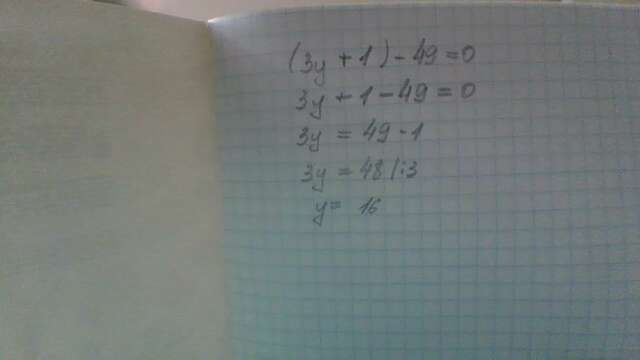 (3y + 1) - 49 = 0
3y + 1 - 49 = 0
3y = 49 - 1
3y = 48 / :3
y = 16